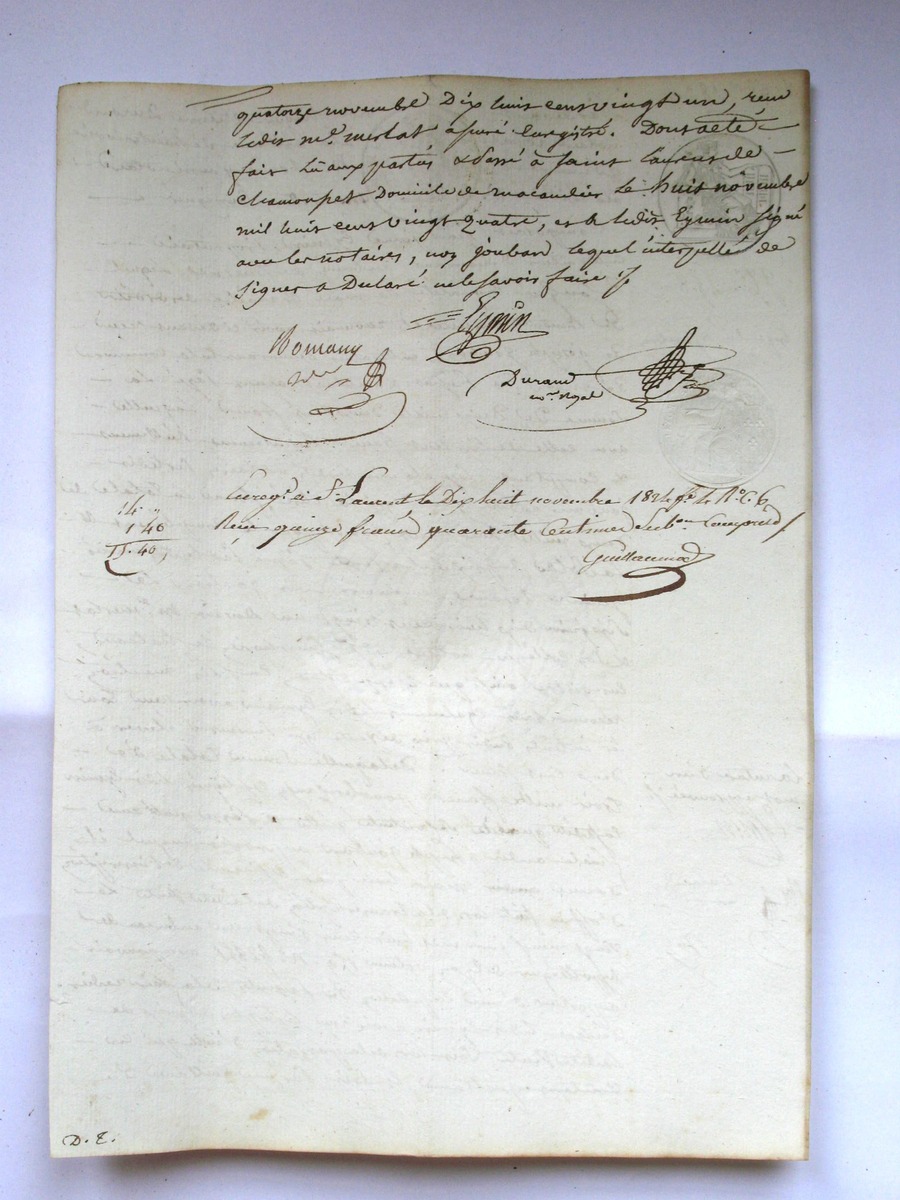 quatorze novembre Dix huit cens vingt un, reçu
ledit me. merlat dûment Enregistré. Dont acte
fait Lu aux parties & passé à saint Laurent de
Chamousset Domicile de macandier Le huit novembre
mil huit cens vingt quatre, et a ledit Eymin signé
avec les notaires, non jouban lequel interpellé de
signer a Déclaré ne le savoir faire
Eymin
Romany
Durand
not. Royal
Enregt. à St. Laurent le Dix huit novembre 1824 fo. 4 Ro. C. 6
14 "
Reçu quinze francs quarante Centimes Sub.on Comprise
1 40
15. 40,
Guillaumod
D. E.